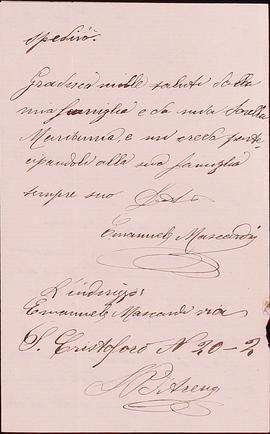 spedirò.
Gradisca mille saluti della
mia famiglia e da mia Sorella
e mi creda
alla sua famiglia
sempre suo
Emanuele Mascardi
L'indirizzo:
Emanuele Mascardi via
S. Cristoforo N 20-2